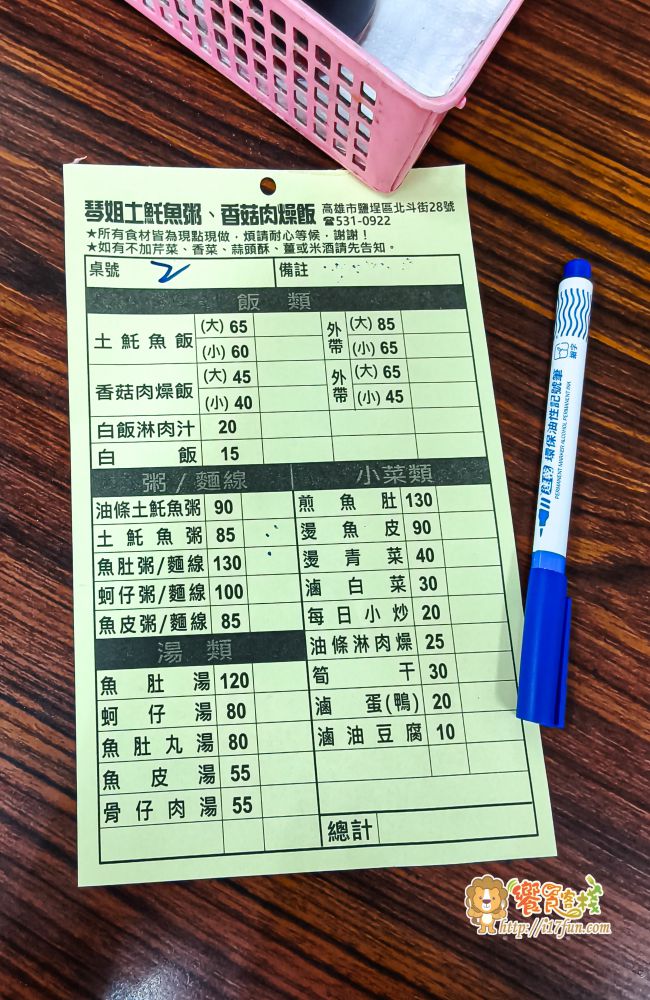 琴姐土魠魚粥、香菇肉燥飯 高雄市鹽埕區北斗街28號
☎531-0922
★所有食材皆為現點現做，煩請耐心等候，謝謝！
★如有不加芹菜、香菜、蒜頭酥、薑或米酒請先告知。
桌號 2 備註
飯類
土魠魚飯 (大) 65 外帶 (大) 85
(小) 60 (小) 65
香菇肉燥飯 (大) 45 外帶 (大) 65
(小) 40 (小) 45
白飯淋肉汁 20
白飯 15
粥/麵線
油條土魠魚粥 90
土魠魚粥 85
魚肚粥/麵線 130
蚵仔粥/麵線 100
魚皮粥/麵線 85
湯類
魚肚湯 120
蚵仔湯 80
魚肚丸湯 80
魚皮湯 55
骨仔肉湯 55
小菜類
煎魚肚 130
燙魚皮 90
燙青菜 40
滷白菜 30
每日小炒 20
油條淋肉燥 25
筍干 30
滷蛋(鴨) 20
滷油豆腐 10
總計
環保油性記號筆
PERMANENT MARKER ALCOHOL PERMANENT INK
饗食客棧
http://i17fun.com